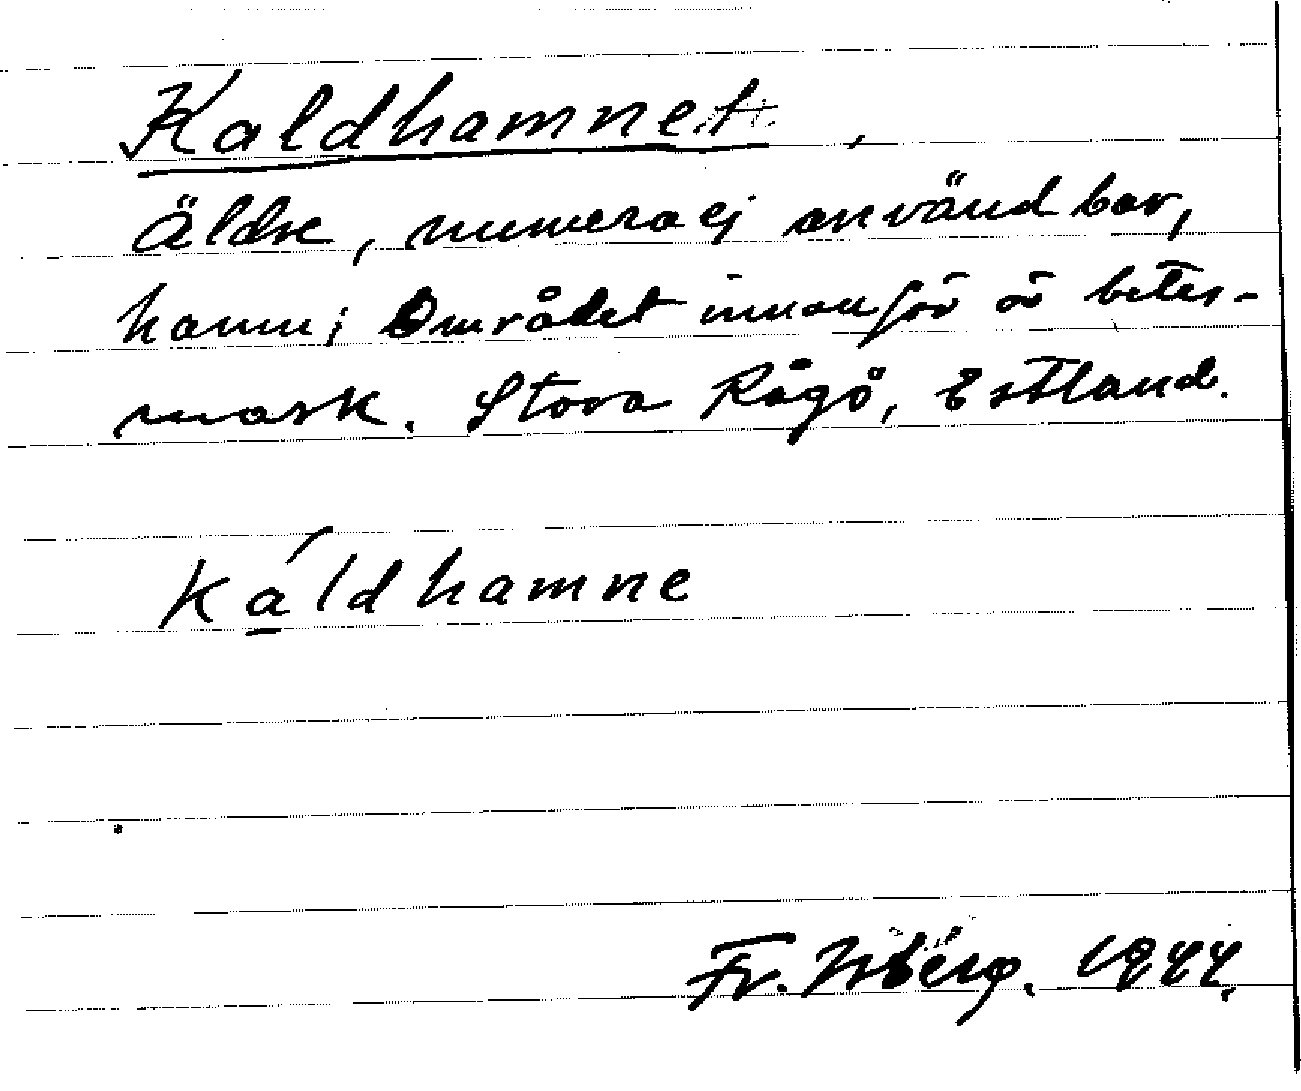 Kaldhamnet,
Äldre, numera ej användbar,
hamn; Området innanför är betes-
mark. Stora Rågö, Estland.
Káldhamne
Fr. 1944.